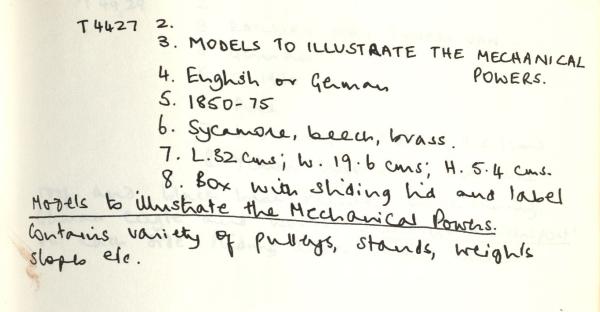 T4427 2.
3. MODELS TO ILLUSTRATE THE MECHANICAL
POWERS.
4. English or German
5. 1850-75
6. Sycamore, beech, brass.
7. L.32 cms; W. 19.6 cms; H. 5.4 cms.
8. Box with sliding lid and label
Models to illustrate the Mechanical Powers.
Contains variety of pulleys, stands, weights
slopes etc.